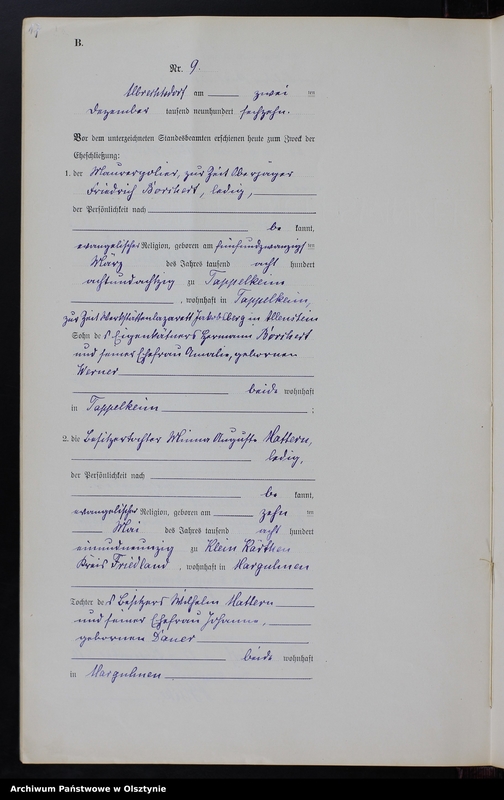 B.
Nr. 9.
Albrechtsdorf am zwei ten
Dezember tausend neunhundert sechzehn.
Vor dem unterzeichneten Standesbeamten erschienen heute zum Zweck der
Eheschließung:
1. der Maurerpolier, zur Zeit Oberjäger
Friedrich Borchert, ledig,
der Persönlichkeit nach
be kannt,
evangelischer Religion, geboren am fünfundzwanzigsten
März des Jahres tausend acht hundert
achtundachtzig zu Tappelkeim
, wohnhaft in Tappelkeim,
zur Zeit Werkstättenlazarett Jakobsberg in Allenstein
Sohn des Eigenkätners Hermann Borchert
und seiner Ehefrau Amalie, geborenen
Werner
beide wohnhaft
in Tappelkeim ;
2. die Besitzertochter Minna Auguste Mattern,
ledig,
der Persönlichkeit nach
be kannt,
evangelischer Religion, geboren am zehn ten
Mai des Jahres tausend acht hundert
einundneunzig zu Klein Kärthen
Kreis Friedland, wohnhaft in Marguhnen
Tochter des Besitzers Wilhelm Mattern
und seiner Ehefrau Johanne,
geborenen Dauer
beide wohnhaft
in Marguhnen
Archiwum Państwowe w Olsztynie